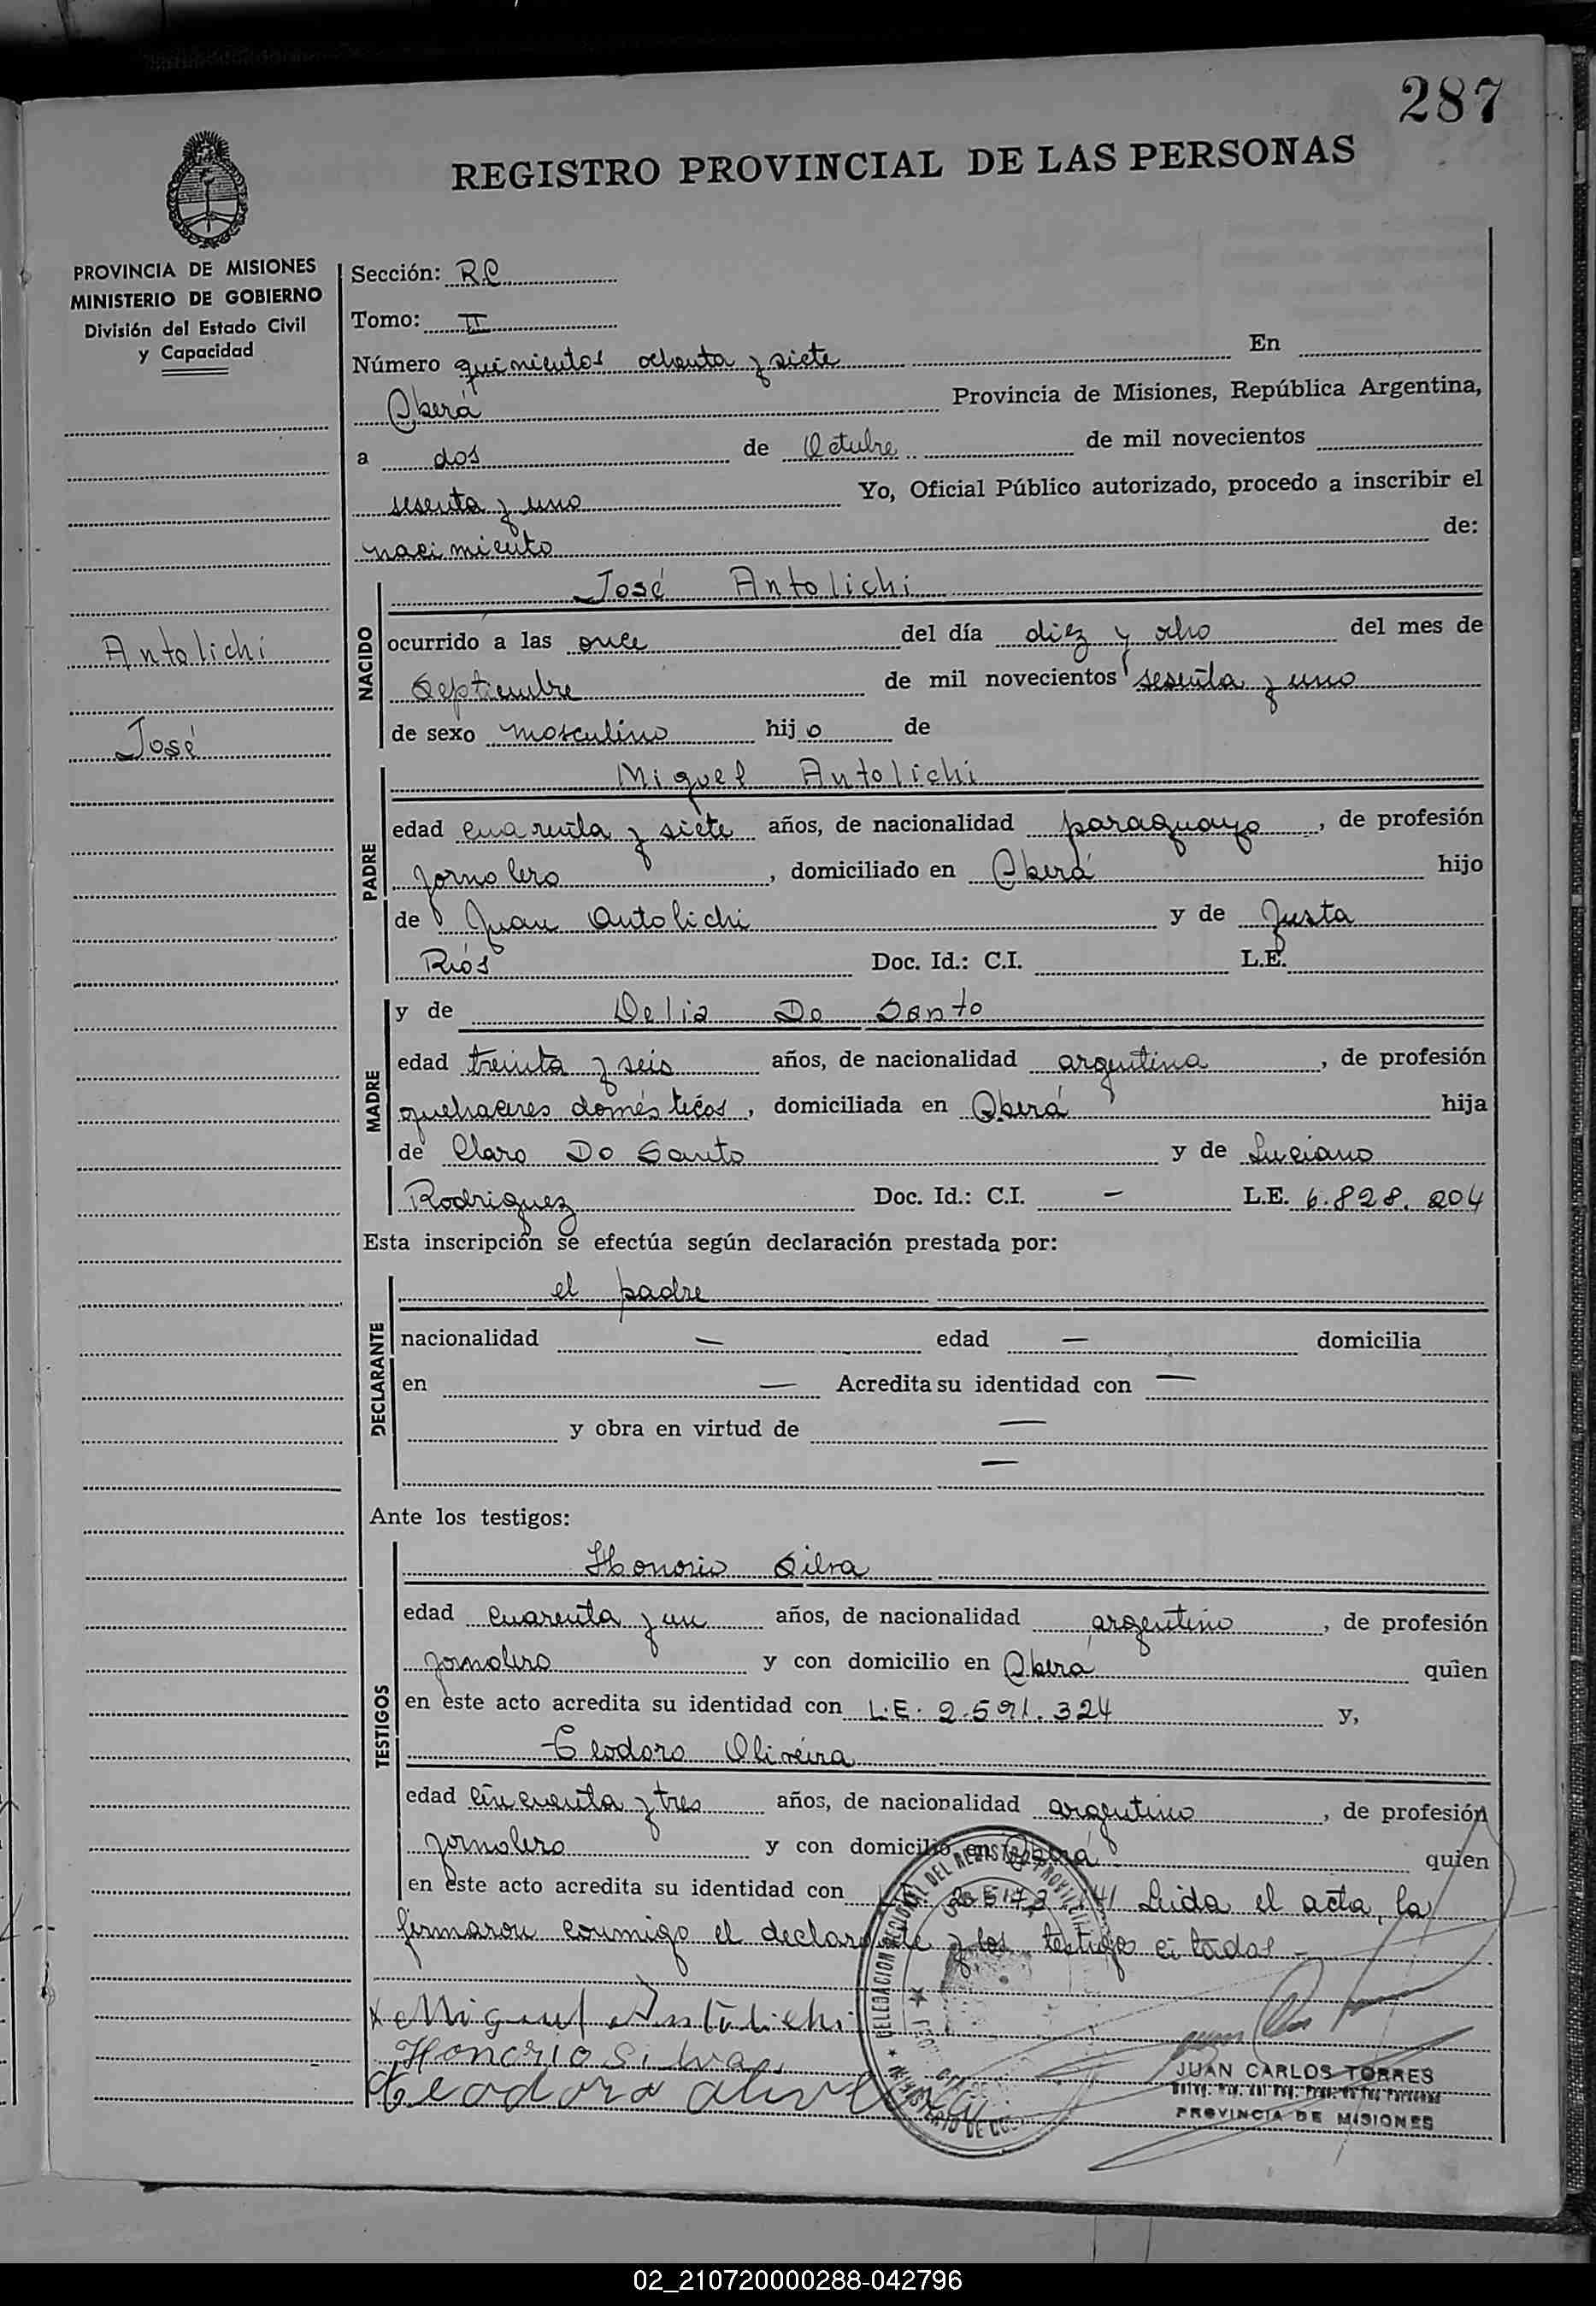 287
REGISTRO PROVINCIAL DE LAS PERSONAS
PROVINCIA DE MISIONES
MINISTERIO DE GOBIERNO
División del Estado Civil
y Capacidad
Antolichi
José
Sección: R.C
Tomo: II
Número quinientos ochenta y siete En
Oberá Provincia de Misiones, República Argentina,
a dos de Octubre de mil novecientos
sesenta y uno Yo, Oficial Público autorizado, procedo a inscribir el
nacimiento de:
NACIDO
José Antolichi
ocurrido a las once del día diez y ocho del mes de
Septiembre de mil novecientos sesenta y uno
de sexo masculino hijo de
PADRE
Miguel Antolichi
edad cuarenta y siete años, de nacionalidad paraguayo, de profesión
jornalero, domiciliado en Oberá hijo
de Juan Antolichi y de Justa
Ríos Doc. Id.: C.I. L.E.
MADRE
y de Delia Do Santo
edad treinta y seis años, de nacionalidad argentina, de profesión
quehaceres domésticos, domiciliada en Oberá hija
de Claro Do Santo y de Luciana
Rodriguez Doc. Id.: C.I. - L.E. 6.828.204
Esta inscripción se efectúa según declaración prestada por:
DECLARANTE
el padre
nacionalidad — edad — domicilia
en — Acredita su identidad con —
y obra en virtud de —
—
Ante los testigos:
TESTIGOS
Honorio Silva
edad cuarenta y un años, de nacionalidad argentino, de profesión
jornalero y con domicilio en Oberá quien
en este acto acredita su identidad con L.E. 2.591.324 y,
Teodoro Oliveira
edad cincuenta y tres años, de nacionalidad argentino, de profesión
jornalero y con domicilio en Oberá quien
en este acto acredita su identidad con Leida el acta, la
firmaron conmigo el declarante y los testigos citados -
x Miguel Antolichi
Honorio Silva
Teodoro
JUAN CARLOS TORRES
PROVINCIA DE MISIONES
02_210720000288-042796